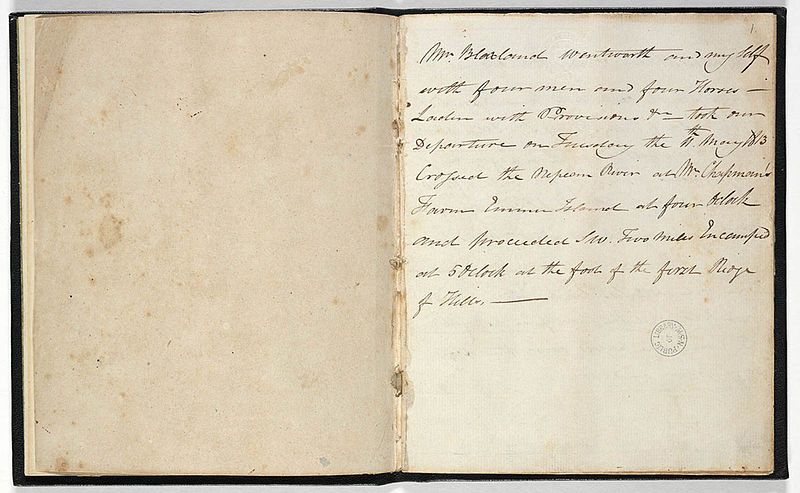 1
Mr. Blaxland Wentworth and myself
with four men and four Horses —
Laden with Provisions &c — took our
Departure on Tuesday the 11th May 1813
Crossed the Nepean River at Mr. Chapman's
Farm Emmu Island at four Oclock
and proceeded SW. Two miles Encamped
at 5 Oclock at the foot of the first Ridge
of Hills. —
PUBLIC LIBRARY N.S.W.